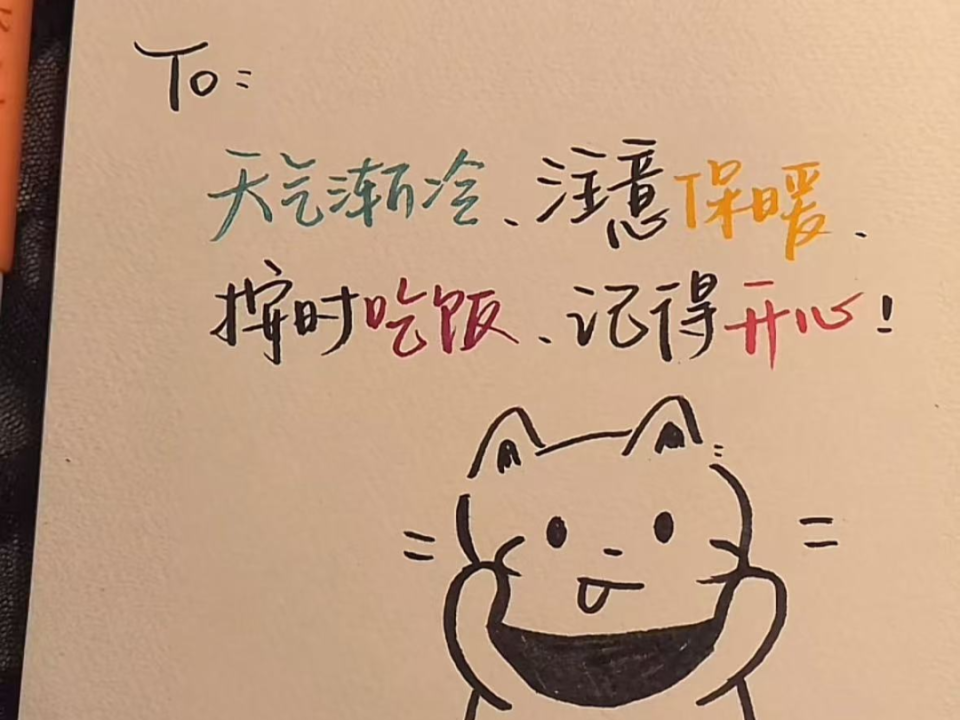 To:
天气渐冷、注意保暖.
按时吃饭、记得开心!